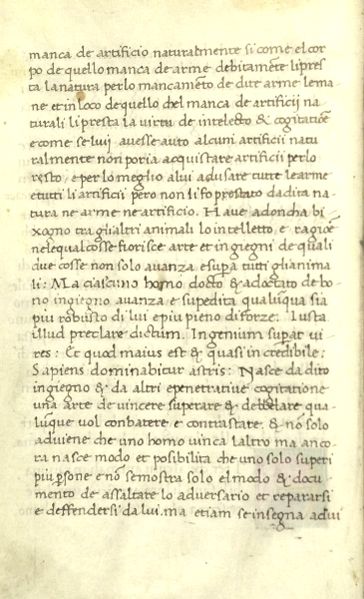 manca de artificio naturalmente si come el cor
po de quello manca de arme debitamente li pres
ta la natura per lo mancamẽto de dite arme le ma
ne et in loco de quello chel manca de artificij na
turali li presta la virtu de intelecto & cogitatiõe
e come se lui avesse auto alcuni artificii natu
ralmente non poria acquistare artificii per lo
resto, e per lo meglio a lui adusare tutte le arme
e tutti li artificii però non li fo prostato da dita na
tura ne arme ne artificio. Have adoncha bi
xogno tra gli altri animali lo intelletto e ragiõe
ne le qual cosse fiorisce arte et ingiegni de quali
due cosse non solo avanza e supa tutti gli anima
li: Ma ciascuno homo docto & adoctato de bo
no ingiegno avanza e supedita qualuqua sia
più robusto di lui e piu pieno di forze. Iusta
illud preclare dictum. Ingenium supat vi
res: Et quod maius est & quasi incredibile:
Sapiens dominabitur astris: Nasce da dito
ingiegno & da altri e penetrative cogitatione
una arte de vincere superare & debelare qua
luque vol conbatere e contrastare, & nõ solo
adiviene che uno homo vinca laltro ma anco
ra nasce modo et posibilita che uno solo superi
piu psone e nõ se mostra solo el modo & docu
mento de assaltare lo adversario et repararsi
e deffendersi da lui, ma etiam se insegna advi